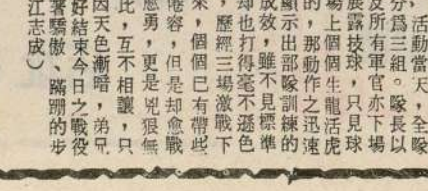 ，活動當天，全隊
分爲三組。隊長以
及所有軍官亦下場
展露技球，只見球
場上個個生龍活虎
的，那動作之迅速
顯示出部隊訓練的
成效，雖不見標準
却也打得毫不遜色
，歷經三場激戰下
來，個個已有帶些
倦容，但是却愈戰
愈勇，更是兇狠無
比，互不相讓，只
因天色漸暗，弟兄
好結束今日之戰役
著驕傲、蹣跚的步
江志成）